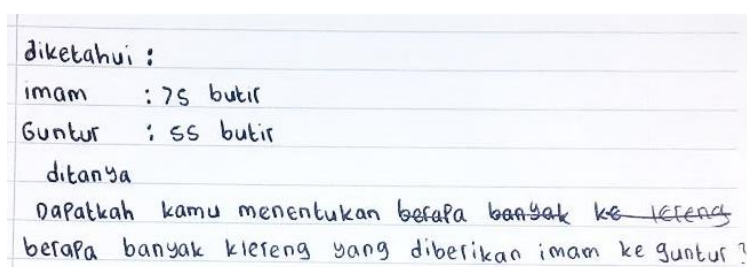 diketahui :
imam : 75 butir
Guntur : 55 butir
ditanya
Dapatkah kamu menentukan berapa banyak ke lereng
berapa banyak klereng yang diberikan imam ke guntur?